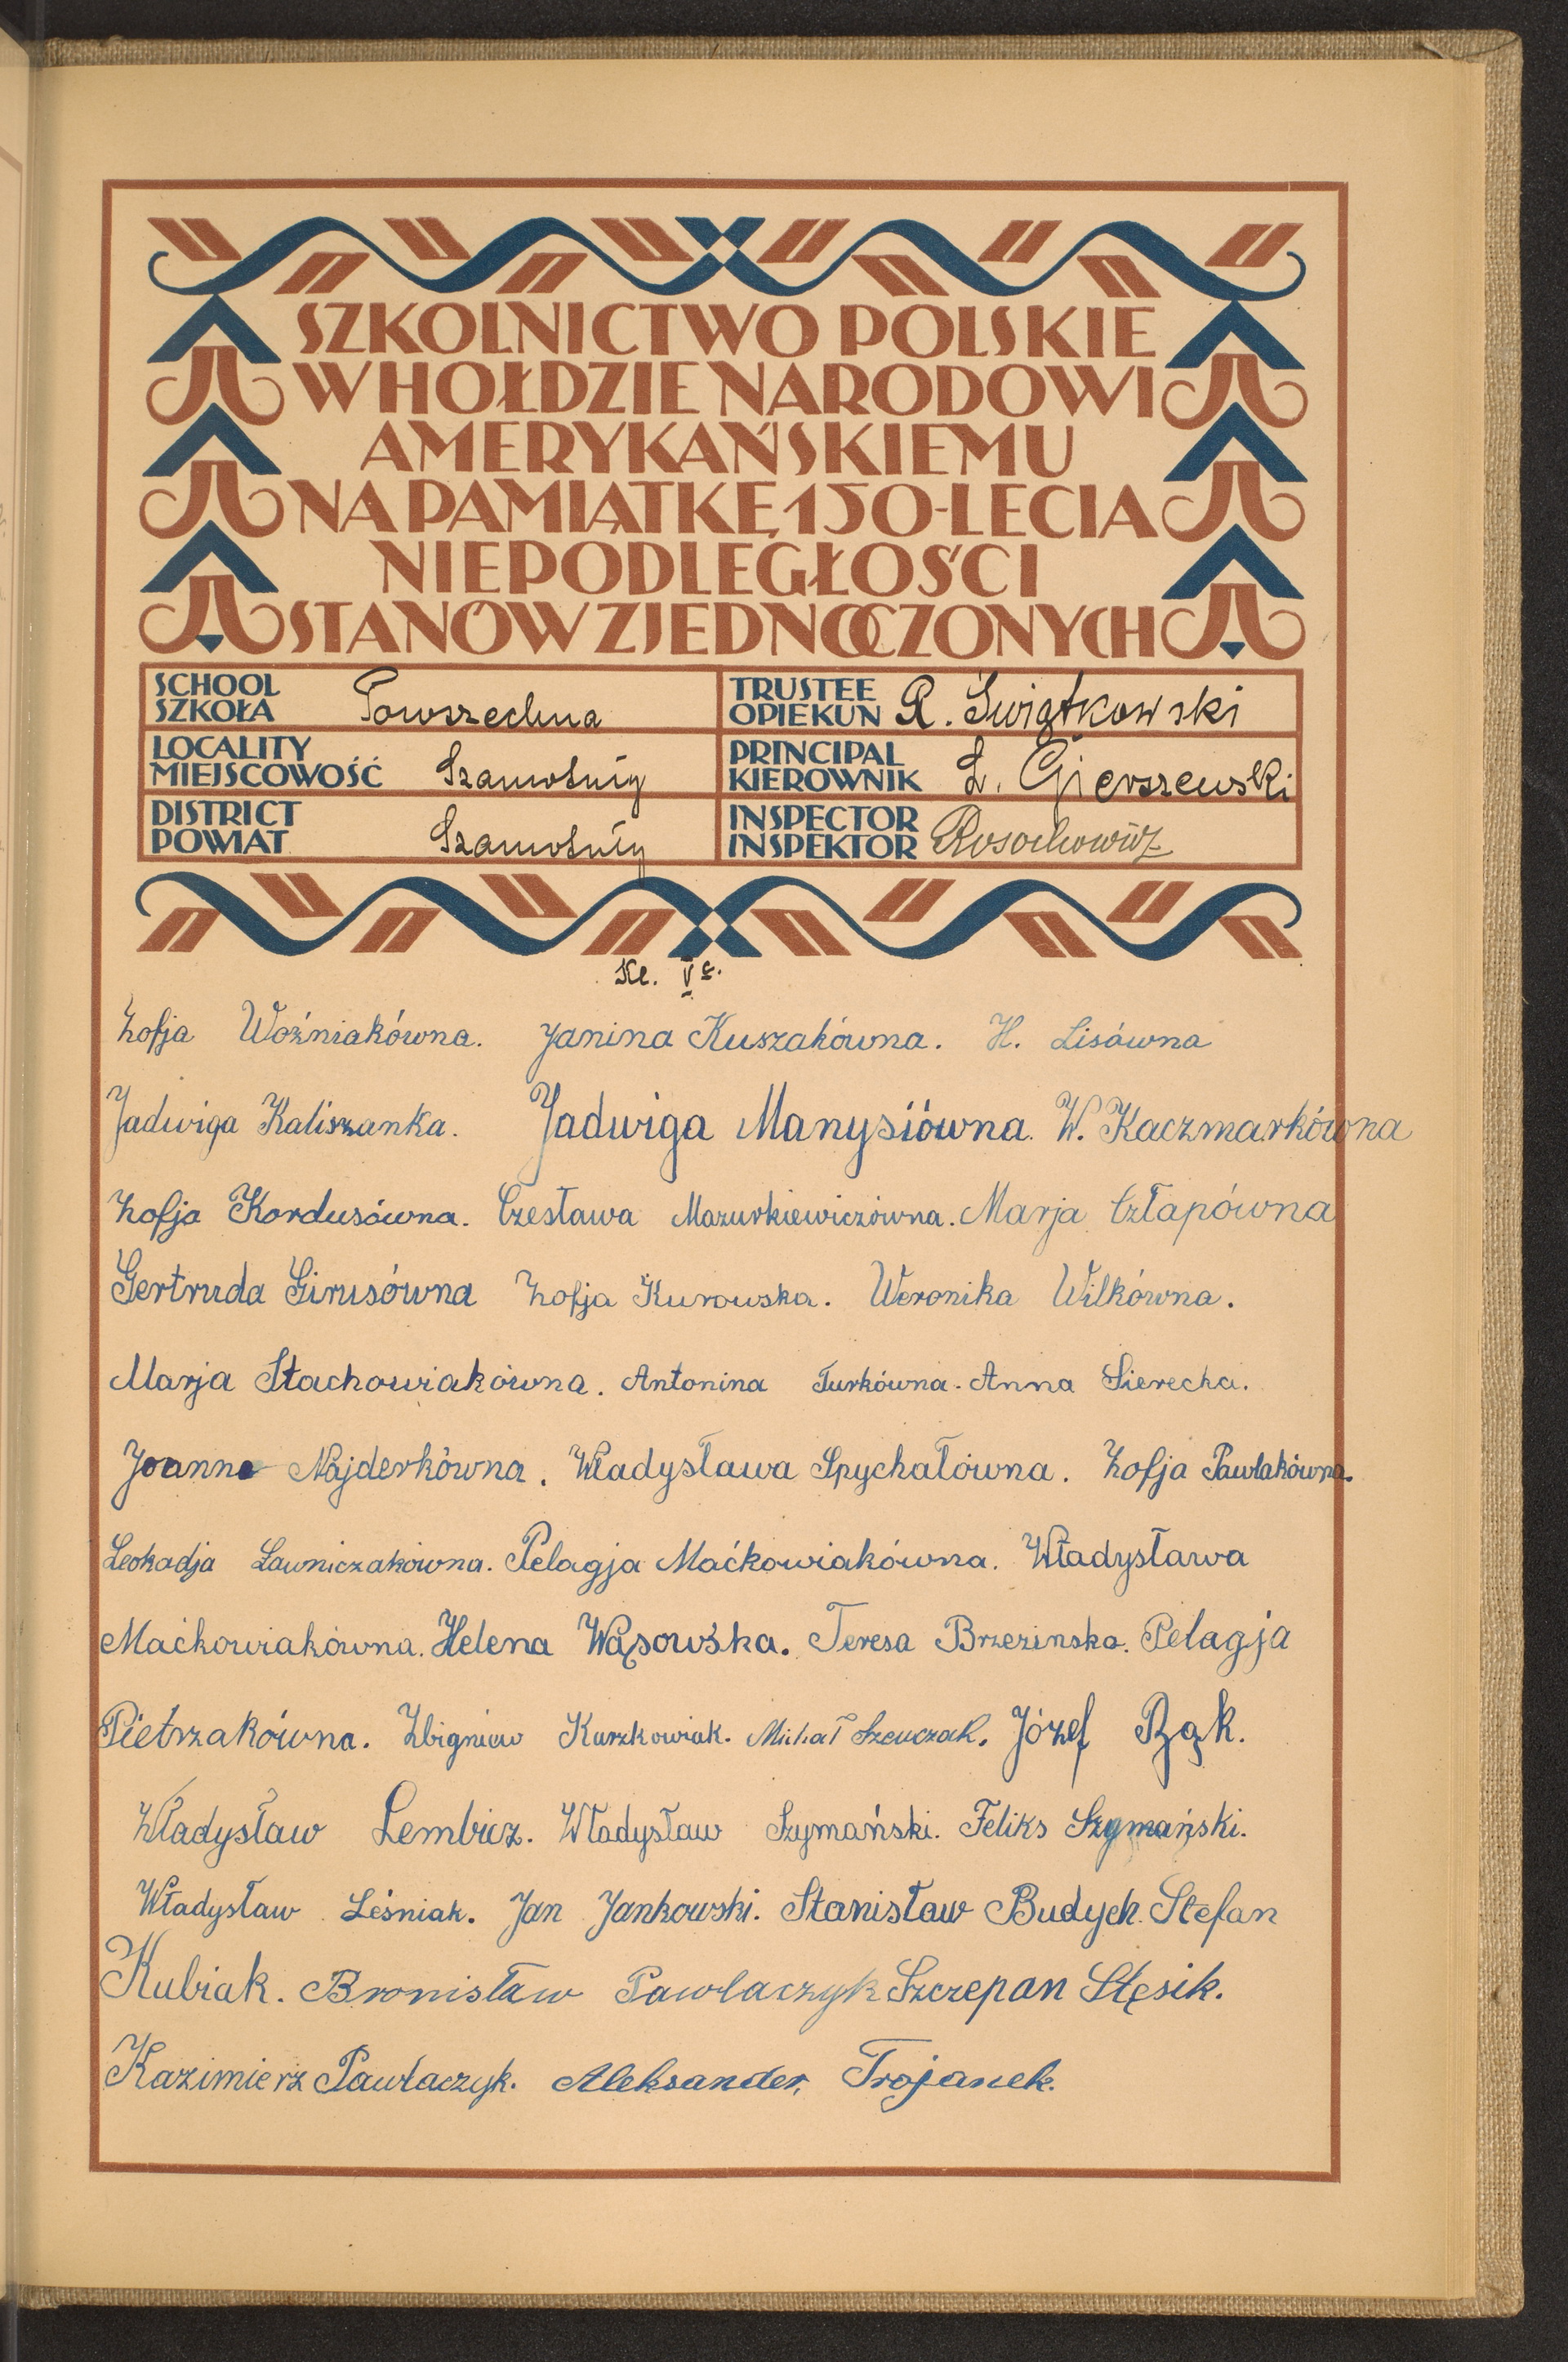 SZKOLNICTWO POLSKIE
W HOŁDZIE NARODOWI
AMERYKAŃSKIEMU
NA PAMIĄTKĘ 150-LECIA
NIEPODLEGŁOŚCI
STANÓW ZJEDNOCZONYCH
SCHOOL
SZKOŁA Powszechna
TRUSTEE
OPIEKUN R. Świątkowski
LOCALITY
MIEJSCOWOŚĆ Szamotuły
PRINCIPAL
KIEROWNIK L. Gierszewski
DISTRICT
POWIAT Szamotuły
INSPECTOR
INSPEKTOR Rosochowicz
Kl. V c.
Zofja Woźniakówna. Janina Kuszakówna. H. Lisówna
Jadwiga Kaliszanka. Jadwiga Manysiówna. W. Kaczmarkówna
Zofja Kordusówna. Czesława Mazurkiewiczówna. Marja Człapówna
Gertruda Girusówna Zofja Kurowska. Weronika Wilkówna.
Marja Stachowiakówna. Antonina Turkówna. Anna Sierecka.
Joanna Najderkówna. Władysława Spychałówna. Zofja Pawlakówna.
Leokadja Ławniczakówna. Pelagja Maćkowiakówna. Władysława
Maćkowiakówna. Helena Wąsowska. Teresa Brzezinska. Pelagja
Pietrzakówna. Zbigniew Kurzkowiak. Michał Szewczak. Józef Bąk.
Władysław Lembicz. Władysław Szymański. Feliks Szymański.
Władysław Leśniak. Jan Jankowski. Stanisław Budych. Stefan
Kubiak. Bronisław Pawlaczyk Szczepan Stęsik.
Kazimierz Pawlaczyk. Aleksander Trojanek.